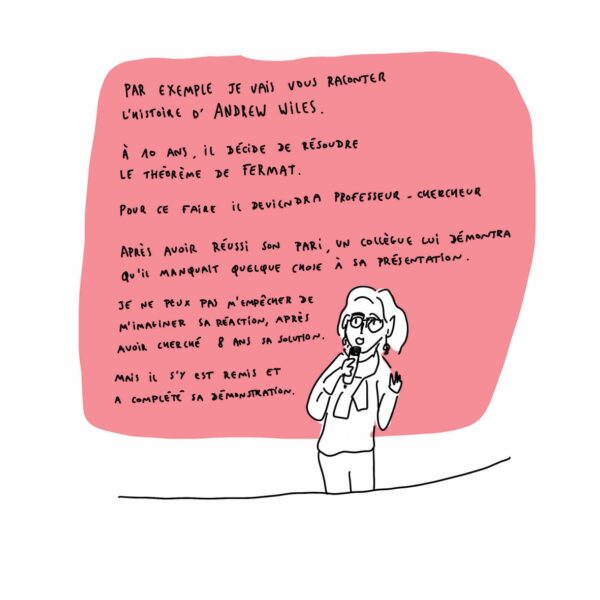 PAR EXEMPLE JE VAIS VOUS RACONTER
L'HISTOIRE D'ANDREW WILES.
À 10 ANS, IL DÉCIDE DE RÉSOUDRE
LE THÉORÈME DE FERMAT.
POUR CE FAIRE IL DEVIENDRA PROFESSEUR-CHERCHEUR
APRÈS AVOIR RÉUSSI SON PARI, UN COLLÈGUE LUI DÉMONTRA
QU'IL MANQUAIT QUELQUE CHOSE À SA PRÉSENTATION.
JE NE PEUX PAS M'EMPÊCHER DE
M'IMAGINER SA RÉACTION, APRÈS
AVOIR CHERCHÉ 8 ANS SA SOLUTION.
MAIS IL S'Y EST REMIS ET
A COMPLÉTÉ SA DÉMONSTRATION.